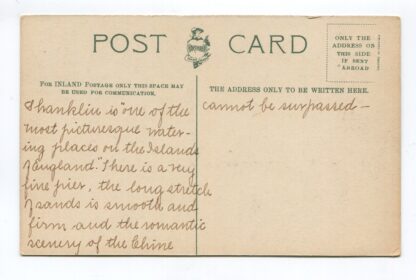 POST CARD
ONLY THE
ADDRESS ON
THIS SIDE
IF SENT
ABROAD
FOR INLAND POSTAGE ONLY THIS SPACE MAY
BE USED FOR COMMUNICATION.
THE ADDRESS ONLY TO BE WRITTEN HERE.
Shanklin is "one of the
most picturesque water-
ing places on the Islands
of England." There is a very
fine pier, the long stretch
of sands is smooth and
firm and the romantic
scenery of the Chine
cannot be surpassed—